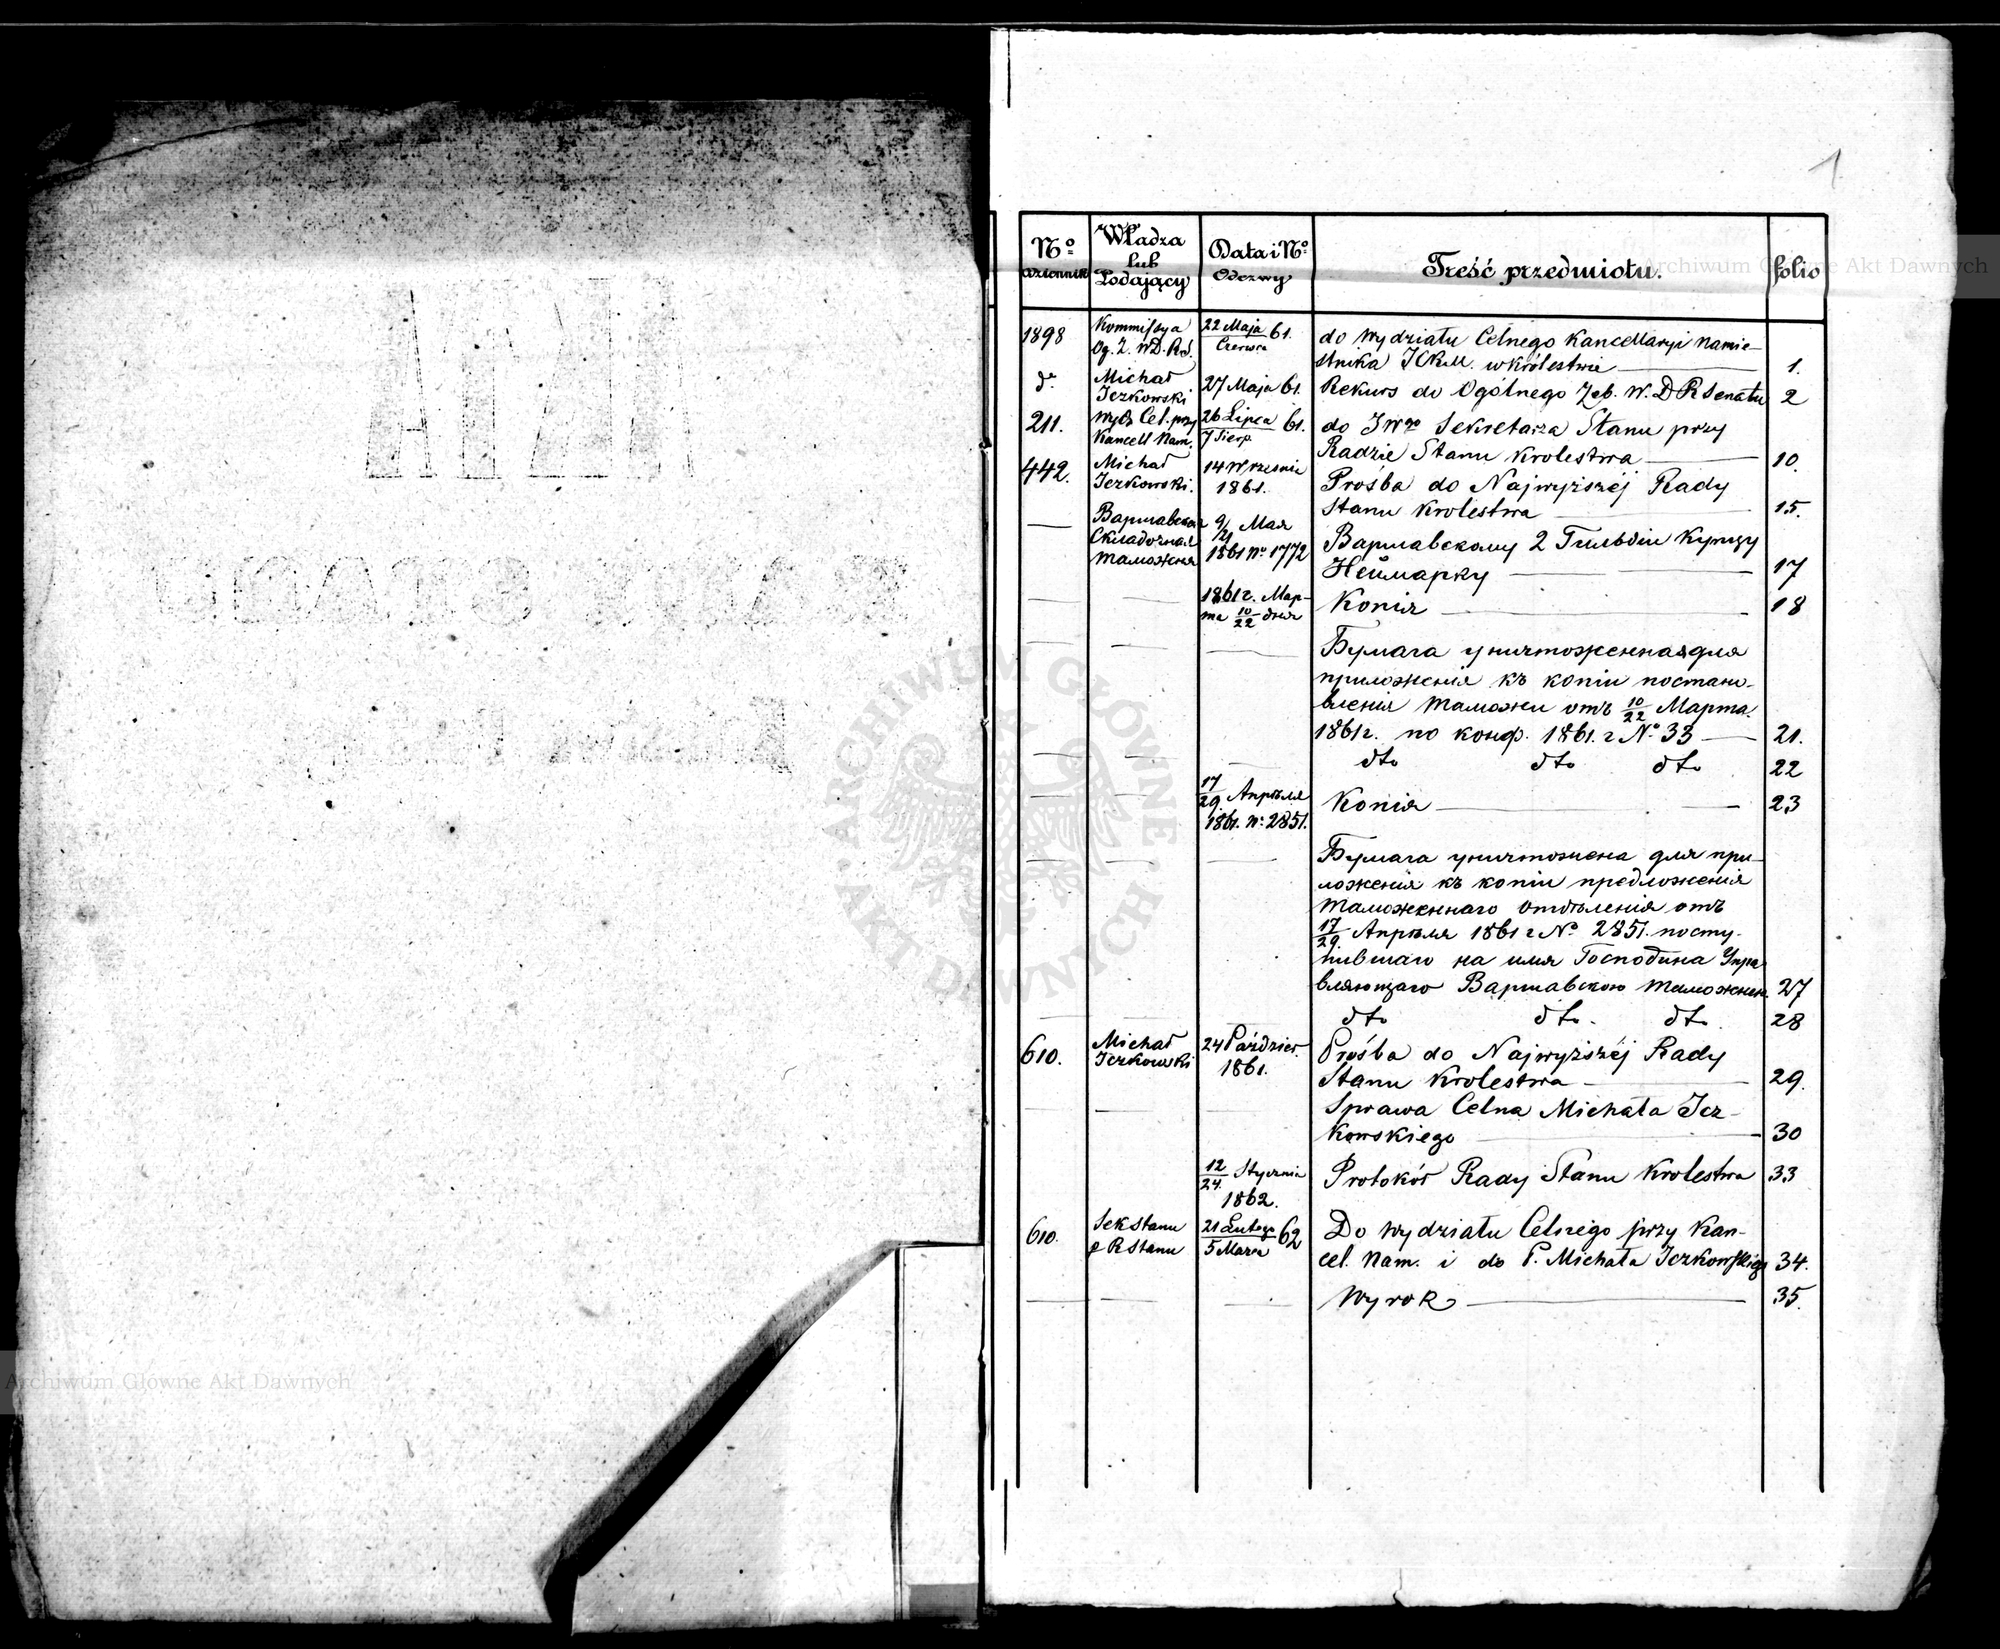 1
Nº dziennik
Władza lub Podający
Data i Nº Odezwy
Treść przedmiotu.
folio
1898 Kommissya 22 Maja 61. do Wydziału Celnego Kancellaryi Namie-
Og. Z. WD. R.S. Czerwca stnika JCKM. w Królestwie 1.
dº Michał Iczkowski 27 Maja 61. Rekurs do Ogólnego Zeb. W. D R Senatu 2
211. Wydz Cel. przy 26 Lipca 61. do JWgo Sekretarza Stanu przy
Kancell Nam. 7 Sierp. Radzie Stanu Krolestwa 10.
442. Michał 14 Września Prośba do Najwyższéj Rady
Iczkowski. 1861. Stanu Krolestwa 15.
Варшавская 9/21 Мая Варшавскому 2 Гильдіи Купцу
Складочная 1861 Nº 1772 Неймарку 17
Таможня
1861 г. Мар-
та 10/22 дня Копія 18
Бумага уничтоженная для
приложенія къ копіи постано-
вленія Таможни отъ 10/22 Марта
1861 г. по конф. 1861. г Nº 33 21.
dto dto dto 22
17/29 Апрѣля Копія 23
1861. Nº 2851.
Бумага уничтожена для при-
ложенія къ копіи предложенія
Таможеннаго Отдѣленія отъ
17/29 Апрѣля 1861 г Nº 2851. посту-
пившаго на имя Господина Упра-
вляющаго Варшавскою Таможнею. 27
dto dto. dto. 28
610. Michał 24 Paździer. Prośba do Najwyższéj Rady
Iczkowski 1861. Stanu Krolestwa 29.
Sprawa Celna Michała Icz-
kowskiego 30
12/24 Stycznia Protokół Rady Stanu Krolestwa 33
1862.
610. Sek Stanu 21 Lutego 62 Do Wydziału Celnego przy Kan-
p R Stanu 5 Marca cel. Nam. i do P. Michała Iczkowskiego 34.
Wyrok 35.
Archiwum Główne Akt Dawnych
Archiwum Główne Akt Dawnych
ARCHIWUM GŁÓWNE AKT DAWNYCH